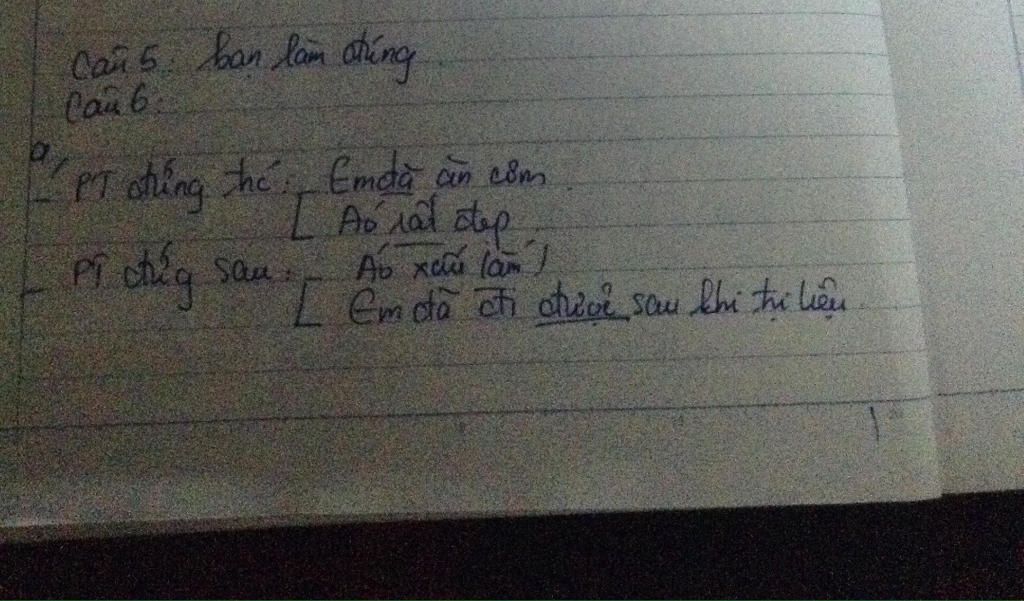 Câu 5: bạn làm đúng
Câu 6:
a,
- PT đứng trc: - Em đã ăn cơm.
[ Áo rất đẹp
- PT đứg sau: - Áo xấu lắm!
[ Em đã đi được sau khi trị liệu